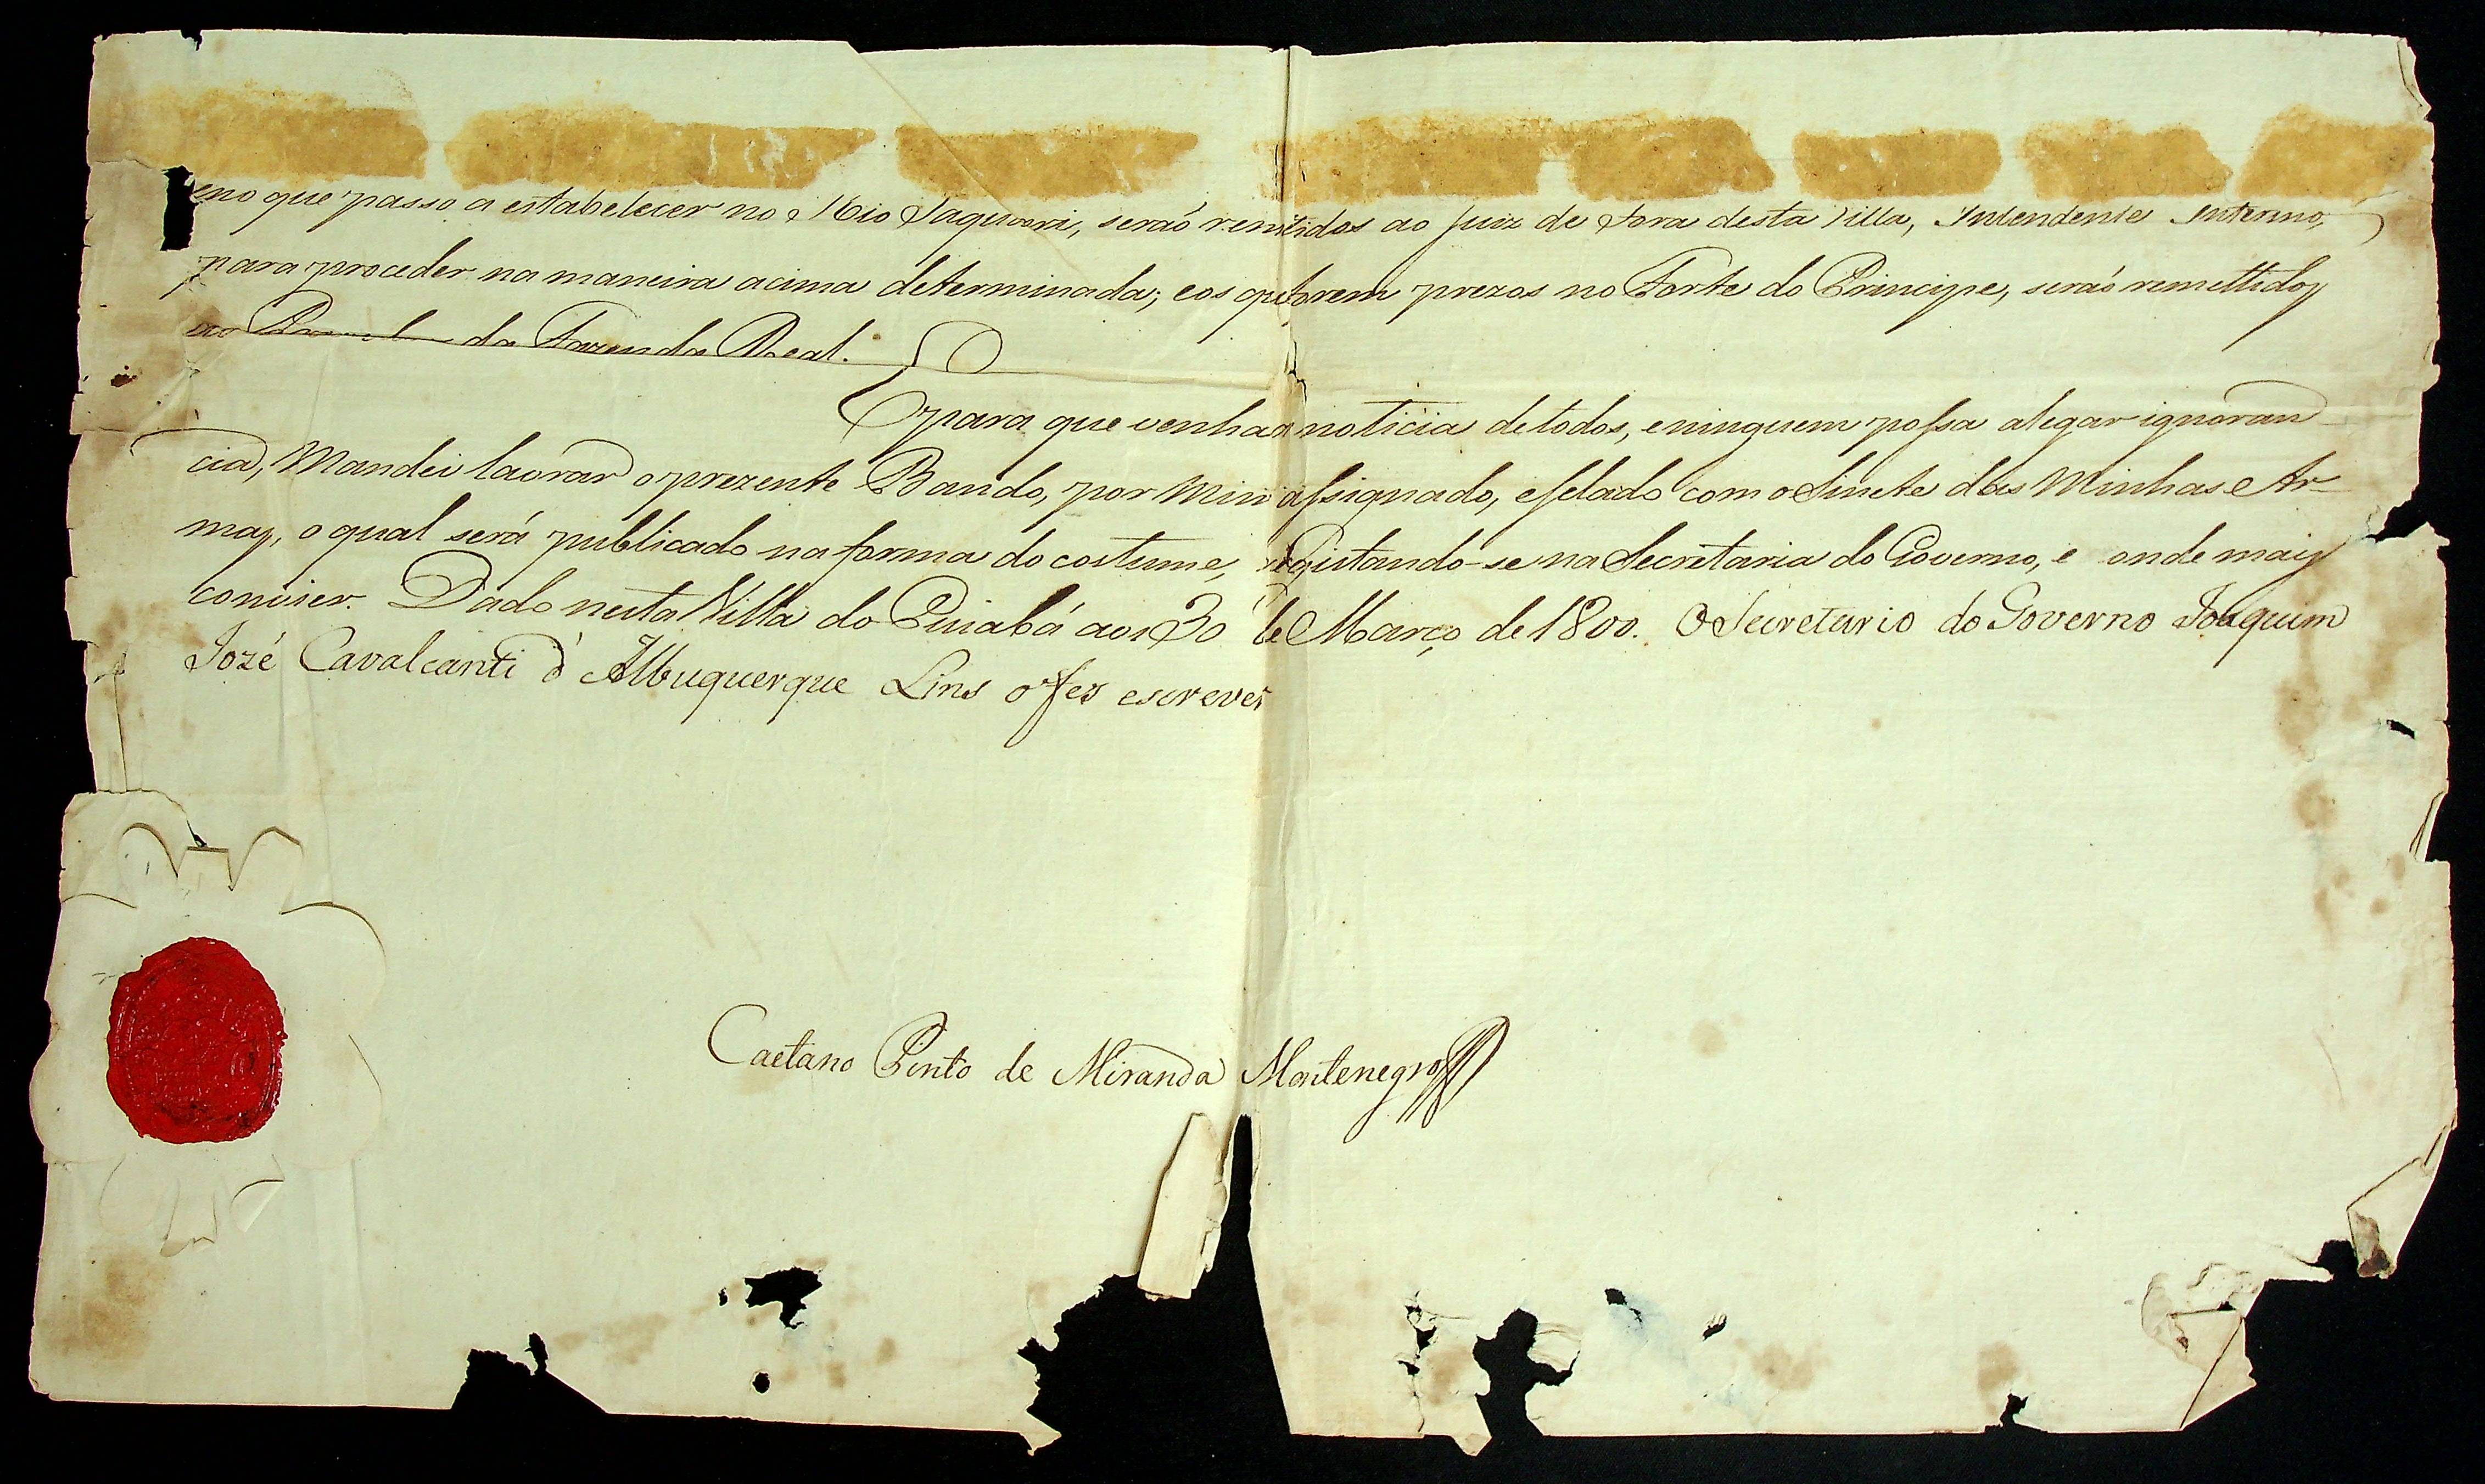 eno que passo a estabelecer no Rio Taquari, serão remetidos ao Juiz de Fora desta Villa, Intendente Interino,
para proceder na maneira acima determinada; e os que forem prezos no Forte do Principe, serão remettidos
ao da Fazenda Real.
E para que venha a noticia de todos, e ninguem possa alegar ignoran
cia, Mandei lavrar o prezente Bando, por Mim assignado, e selado com o Sinete das Minhas Ar-
mas, o qual será publicado na forma do costume, registando-se na Secretaria do Governo, e onde mais
convier. Dado nesta Villa do Cuiabá aos 30 de Março de 1800. O Secretario do Governo Joaquim
Jozé Cavalcanti d'Albuquerque Lins o fez escrever
Caetano Pinto de Miranda Montenegro